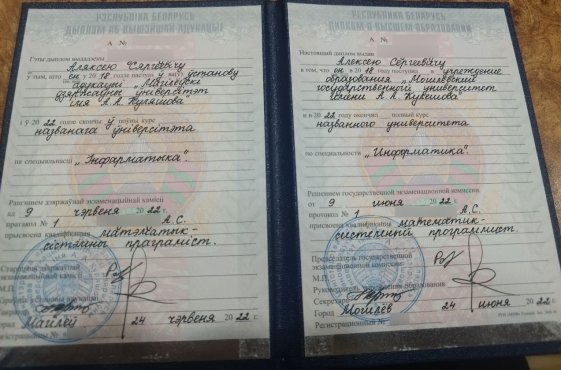 РЭСПУБЛІКА БЕЛАРУСЬ
ДЫПЛОМ АБ ВЫШЭЙШАЙ АДУКАЦЫІ
А №
Гэты дыплом выдадзены
Аляксею Сяргеевічу
ў тым, што ён у 20 18 годзе паступ ў ва ўстанову
адукацыі „Магілёўскі
дзяржаўны ўніверсітэт
імя А.А. Куляшова"
і ў 20 22 годзе скончы ў поўны курс
названага ўніверсітэта
па спецыяльнасці „Інфарматыка".
Рашэннем дзяржаўнай экзаменацыйнай камісіі
ад 9 чэрвеня 20 22 г.
пратакол № 1 А.С.
прысвоена кваліфікацыя матэматык-
сістэмны праграміст.
Старшыня дзяржаўнай
экзаменацыйнай камісіі
М.П.
Кіраўнік установы адукацыі
Горад Магілёў 24 чэрвеня 20 22 г.
Рэгістрацыйны №
РЕСПУБЛИКА БЕЛАРУСЬ
ДИПЛОМ О ВЫСШЕМ ОБРАЗОВАНИИ
А №
Настоящий диплом выдан
Алексею Сергеевичу
в том, что он в 20 18 году поступил в учреждение
образования „Могилёвский
государственный университет
имени А.А. Кулешова"
и в 20 22 году окончил полный курс
названного университета
по специальности „Информатика".
Решением государственной экзаменационной комиссии
от 9 июня 20 22 г.
протокол № 1 А.С.
присвоена квалификация математик-
системный программист.
Председатель государственной
экзаменационной комиссии
М.П.
Руководитель образования
Секретарь
Город Могилёв 24 июня 20 22 г.
Регистрационный №